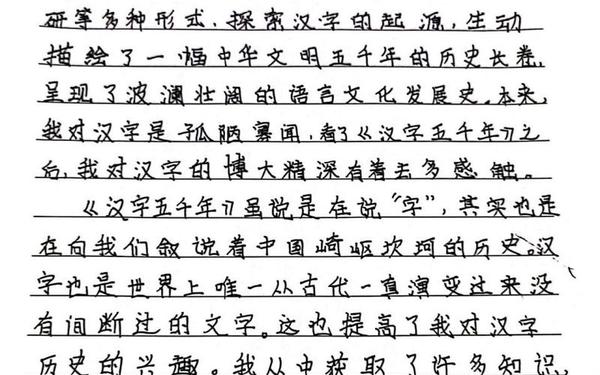 研等多种形式，探索汉字的起源，生动
描绘了一幅中华文明五千年的历史长卷，
呈现了波澜壮阔的语言文化发展史。本来，
我对汉字是孤陋寡闻，看了《汉字五千年》之
后，我对汉字的博大精深有着去多感触。
《汉字五千年》虽说是在说“字”，其实也是
在向我们叙说着中国崎岖坎坷的历史。汉
字也是世界上唯一从古代一直演变过来没
有间断过的文字。这也提高了我对汉字
历史的兴趣。我从中获取了许多知识，